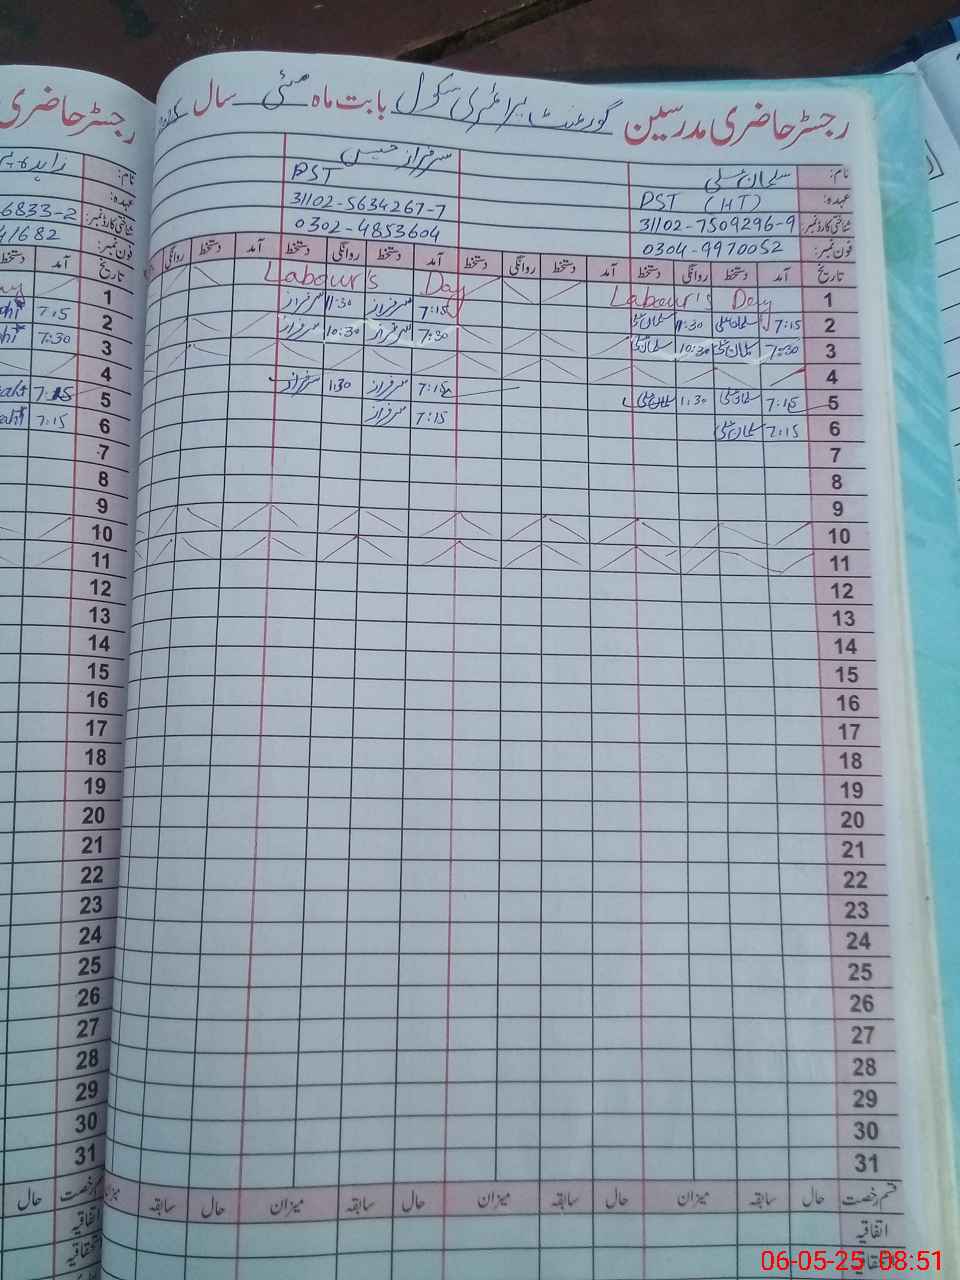 رجسٹر حاضری مدرسین گورنمنٹ پرائمری سکول بابت ماہ مئی سال
نام: سلمان علی
سرفراز حسین
عہدہ: PST (HT)
PST
شناختی کارڈ نمبر: 31102-7509296-9
31102-5634267-7
فون نمبر: 0304-9970052
0302-4853604
تاریخ آمد دستخط روانگی دستخط آمد دستخط روانگی دستخط آمد دستخط روانگی دستخط آمد دستخط روانگی
1 Labour's Day Labour's Day
2 7:15 سلمان علی 11:30 سلمان علی 7:15 سرفراز 11:30 سرفراز
3 7:30 سلمان علی 10:30 سلمان علی 7:30 سرفراز 10:30 سرفراز
4
5 7:15 سلمان علی 1:30 سلمان علی 7:15 سرفراز 1:30 سرفراز
6 7:15 سلمان علی 7:15 سرفراز
7
8
9
10
11
12
13
14
15
16
17
18
19
20
21
22
23
24
25
26
27
28
29
30
31
قسم رخصت حال سابقہ میزان حال سابقہ میزان حال سابقہ میزان حال سابقہ
اتفاقیہ
استحقاقیہ
رجسٹر حاضری
6833-2
41682
تاریخ آمد دستخط
1
2 7:15
3 7:30
4
5 7:15
6 7:15
7
8
9
10
11
12
13
14
15
16
17
18
19
20
21
22
23
24
25
26
27
28
29
30
31
قسم رخصت حال
اتفاقیہ
06-05-25 08:51